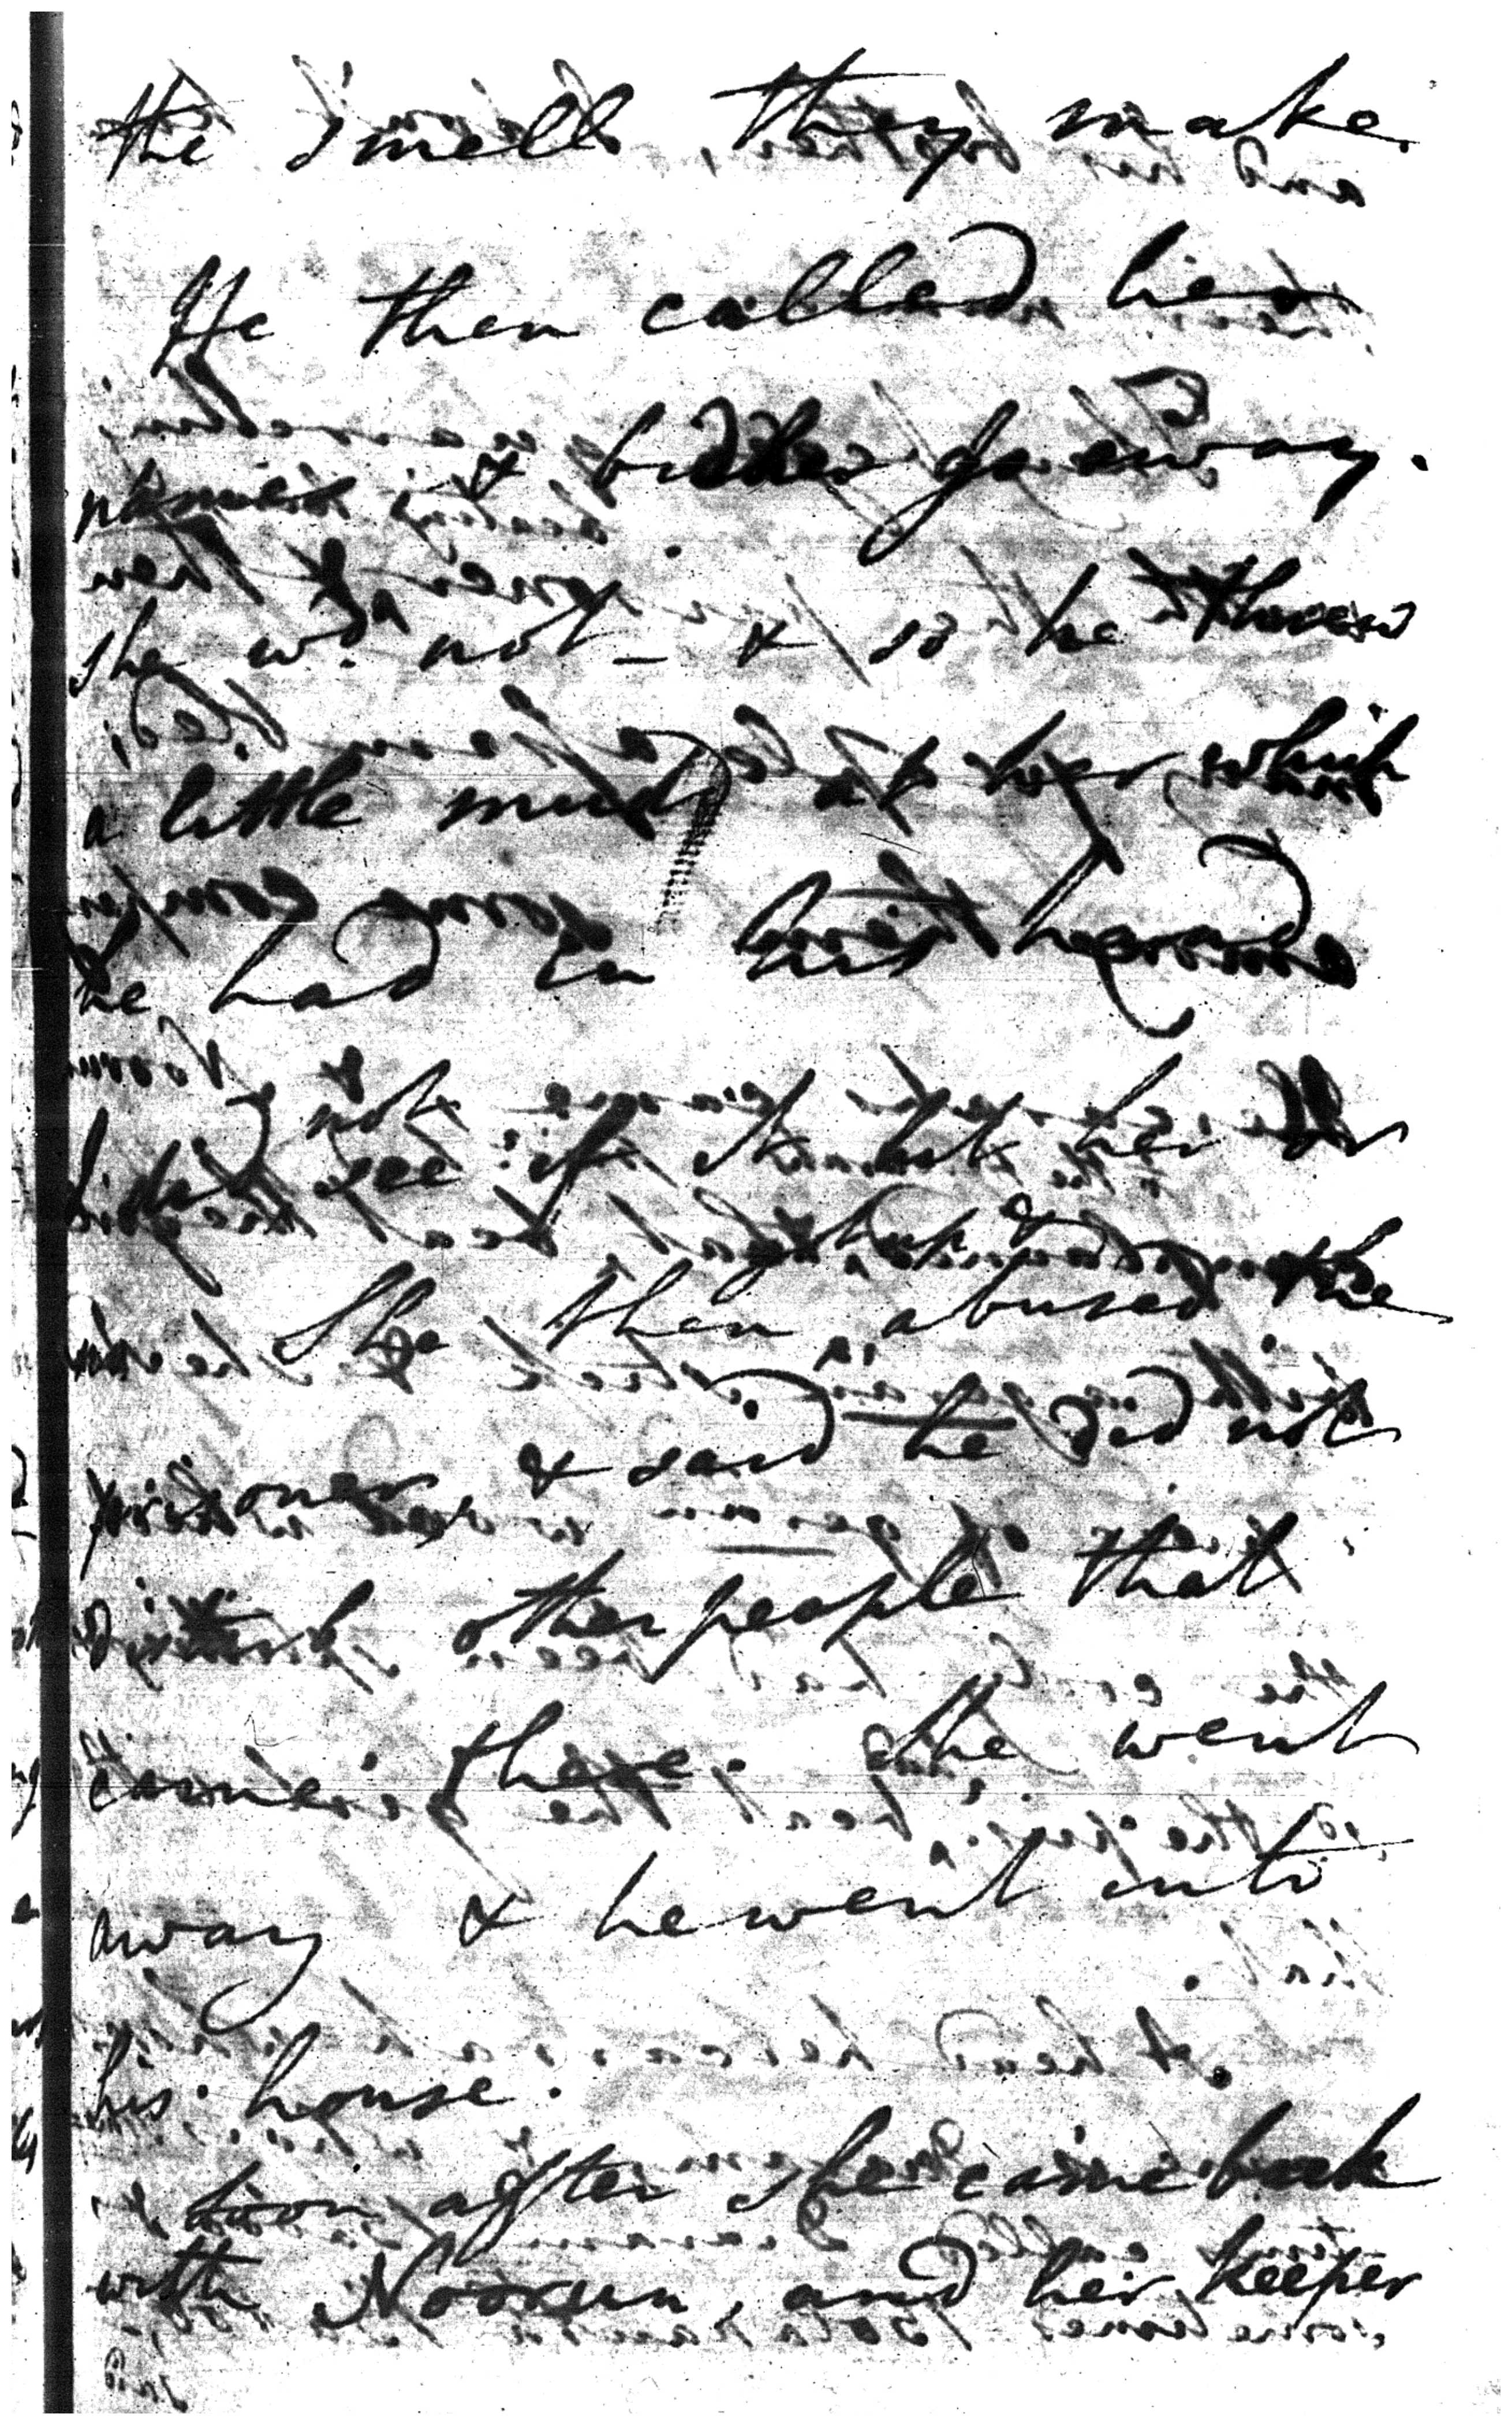 the smell they make.
He then called her
names & bid her go away.
she wd. not – & so he threw
a little mud at her which
he had in his hand
did not see if it hit her or
not She then abused the
prisoner & said he did not
disturb other people that
came there. She went
away & he went into
his house.
Soon after she came back
with Noorun, and her keeper